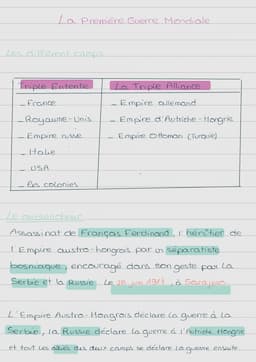 La Première Guerre Mondiale
Les différent camps
Triple Entente
La Triple Alliance
- France
- Empire allemand
- Royaume-Unis
- Empire d'Autriche-Hongrie
- Empire russe
- Empire Ottoman (Turquie)
- Italie
- USA
- Les colonies
Le déclencheur
Assassinat de François Ferdinand, l'héritier de
l'Empire austro-hongrois par un séparatiste
bosniaque, encouragé dans son geste par la
Serbie et la Russie. Le 28 juin 1914, à Sarajevo.
L'Empire Austro-Hongrois déclare la guerre à la
Serbie, la Russie déclare la guerre à l'Autriche Hongrie
et tout les alliés des deux camps se déclare la guerre ensuite.